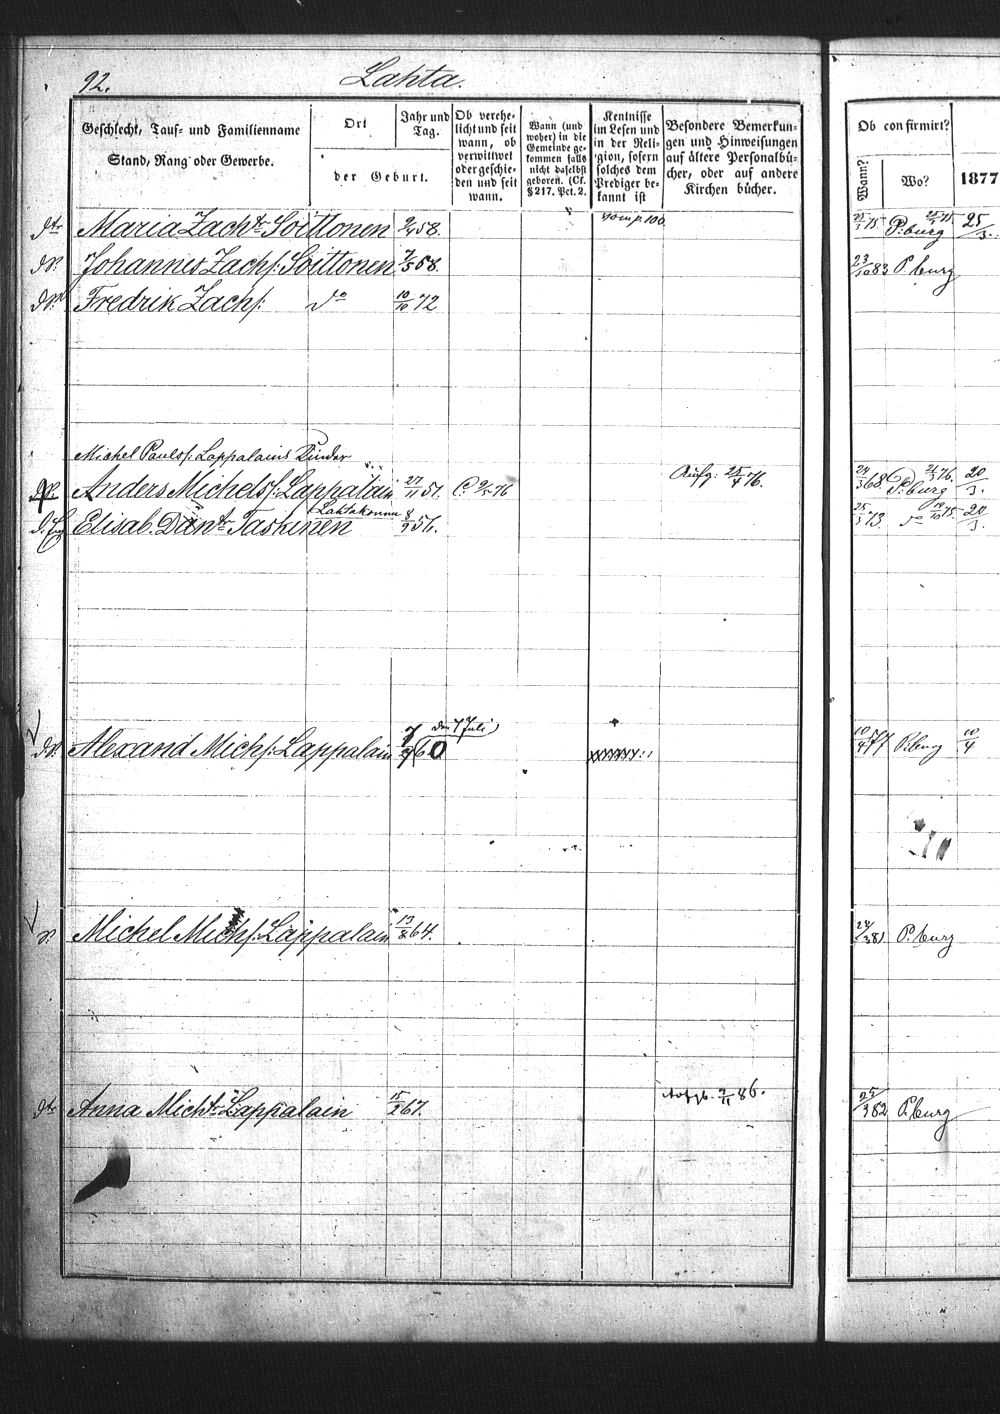 92. Lahta.
Geschlecht, Tauf- und Familienname
Stand, Rang oder Gewerbe.
Ort
der Geburt.
Jahr und
Tag.
Ob verehe-
licht und seit
wann, ob
verwittwet
oder geschie-
den und seit
wann.
Wann (und
woher) in die
Gemeinde ge-
kommen falls
nicht daselbst
geboren. (Cf.
§ 217. Pct. 2.
Kentnisse
im Lesen und
in der Reli-
gion, sofern
solches dem
Prediger be-
kannt ist
Besondere Bemerkun-
gen und Hinweisungen
auf ältere Personalbü-
cher, oder auf andere
Kirchen bücher.
Ob confirmirt?
Wann?
Wo?
1877
dtr Maria Zachtr Soittonen 2/4 58. vom p. 100. 25/3 75. P.burg 25/3 75. 25/3.
dS. Johannes Zachs: Soittonen 7/5 58. 23/10 83 P.burg
dS. Fredrik Zachs: do 10/10 72
Michel Pauls: Lappalains Kinder
dS. Anders Michels: Lappalain 27/11 51. C. 2/5 76 Aufg: 25/4 76. 24/3 68. P.burg 21/3 76. 20/3.
Lahtakonnu
d. Fr. Elisab. Dantr Taskinen 8/9 56. 25/3 73. do 19/10 75. 20/3.
den 7 Juli
dS. Alexand Michs: Lappalain 7/7 60 10/4 77 P.burg 10/4
S. Michel Michs: Lappalain 13/8 64. 24/3 81. P.burg
dtr Anna Michtr Lappalain 15/2 67. Aufgb. 9/11 86. 25/3 82 P.burg